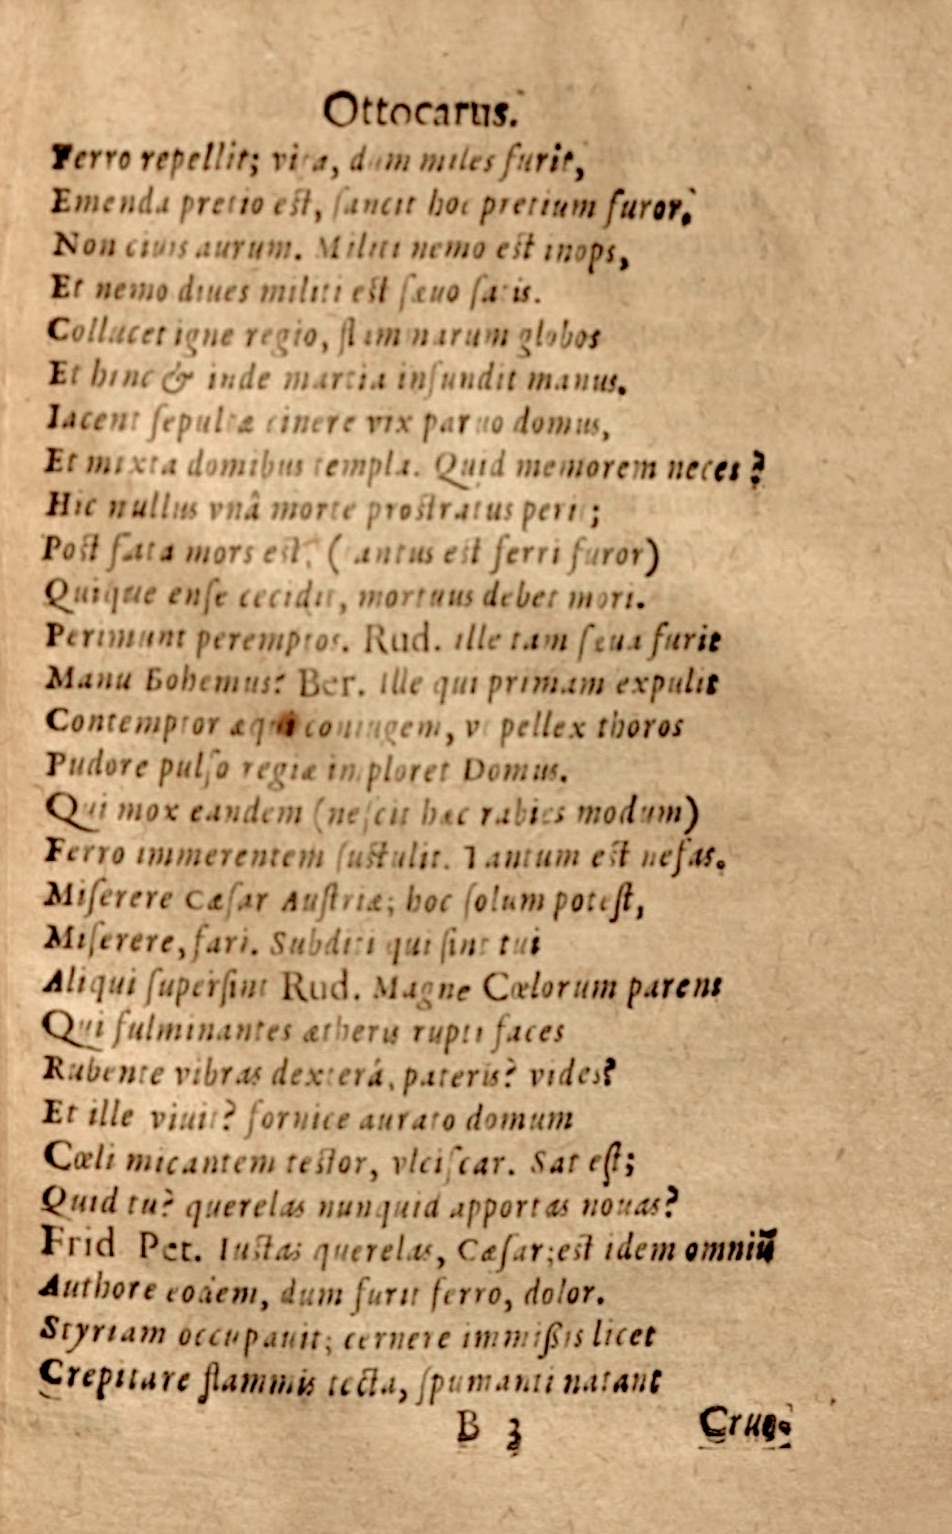 Ottocarus.
Ferro repellit; vita, dum miles furit,
Emenda pretio est, sancit hoc pretium furor.
Non ciuis aurum. Militi nemo est inops,
Et nemo diues militi est sæuo satis.
Collucet igne regio, flammarum globos
Et hinc & inde martia infundit manus.
Iacent sepultæ cinere vix paruo domus,
Et mixta domibus templa. Quid memorem neces?
Hic nullus vnâ morte prostratus perit;
Post fata mors est, (tantus est ferri furor)
Quique ense cecidit, mortuus debet mori.
Perimunt peremptos. Rud. ille tam seua furit
Manu Bohemus? Ber. ille qui primam expulit
Contemptor æqui coniugem, vt pellex thoros
Pudore pulso regiæ imploret Domus.
Qui mox eandem (nescit hæc rabies modum)
Ferro immerentem sustulit. Tantum est nefas.
Miserere Cæsar Austriæ; hoc solum potest,
Miserere, fari. Subditi qui sint tui
Aliqui supersint Rud. Magne Cœlorum parens
Qui fulminantes ætheris rupti faces
Rubente vibras dexterá, pateris? vides?
Et ille viuit? fornice aurato domum
Cœli micantem testor, vlciscar. Sat est;
Quid tu? querelas nunquid apportas nouas?
Frid Pet. Iustas querelas, Cæsar; est idem omniū
Authore eodem, dum furit ferro, dolor.
Styriam occupauit; cernere immißis licet
Crepitare flammis tecta, spumanti natant
B 3 Cruo-